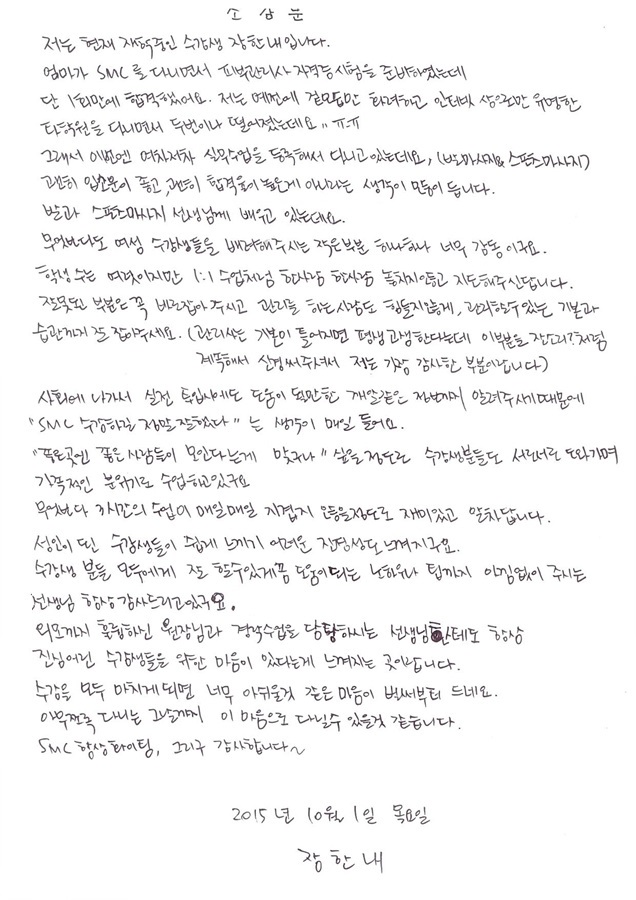 소 감 문
저는 현재 재학중인 수강생 장한내입니다.
엄마가 SMC를 다니면서 피부관리사 자격증시험을 준비하였는데
단 1회만에 합격했어요. 저는 예전에 겉모습만 화려하고 인터넷 상으로만 유명한
타학원을 다니면서 두번이나 떨어졌는데요.. ㅠ-ㅠ
그래서 이번엔 여차저차 실무수업을 등록해서 다니고 있는데요, (발마사지&스포츠마사지)
괜히 입소문이 좋고, 괜히 합격율이 높은게 아니라는 생각이 만땅이 듭니다.
발과 스포츠마사지 선생님께 배우고 있는데요.
무엇보다도 여성 수강생들을 배려해주시는 작은부분 하나하나 너무 감동이구요.
학생 수는 여럿이지만 1:1 수업처럼 한사람 한사람 놓치지않고 지도해주신답니다.
잘못된 부분은 꼭 바로잡아 주시고 관리를 하는사람도 힘들지않게, 관리할수있는 기본과
습관까지 잘 잡아주세요. (관리사는 기본이 틀어지면 평생고생한다는데 이부분을 잔소리?처럼
계속해서 신경써주셔서 저는 가장 감사한 부분이랍니다)
사회에 나가서 실전 투입시에도 도움이 될만한 깨알같은 정보까지 알려주시기때문에
"SMC 수강하길 정말잘했다" 는 생각이 매일 들어요.
"좋은곳엔 좋은 사람들이 모인다는게 맞구나" 싶을정도로 수강생분들도 서로서로 도와가며
가족적인 분위기로 수업하고있구요
무엇보다 3시간의 수업이 매일매일 지겹지 않을정도로 재미있고 알차답니다.
성인이 된 수강생들이 쉽게 느끼기 어려운 진정성도 느껴지구요.
수강생 분들 모두에게 잘 할수있게끔 도움이되는 노하우나 팁까지 아낌없이 주시는
선생님 항상 감사드리고있구요.
외모까지 훌륭하신 원장님과 경락수업을 담당하시는 선생님한테도 항상
진심어린 수강생들을 위한 마음이 있다는게 느껴지는 곳이랍니다.
수강을 모두 마치게되면 너무 아쉬울것 같은 마음이 벌써부터 드네요.
아무쪼록 다니는 그날까지 이 마음으로 다닐수 있을것 같습니다.
SMC 항상화이팅, 그리구 감사합니다~
2015년 10월 1일 목요일
장 한 내